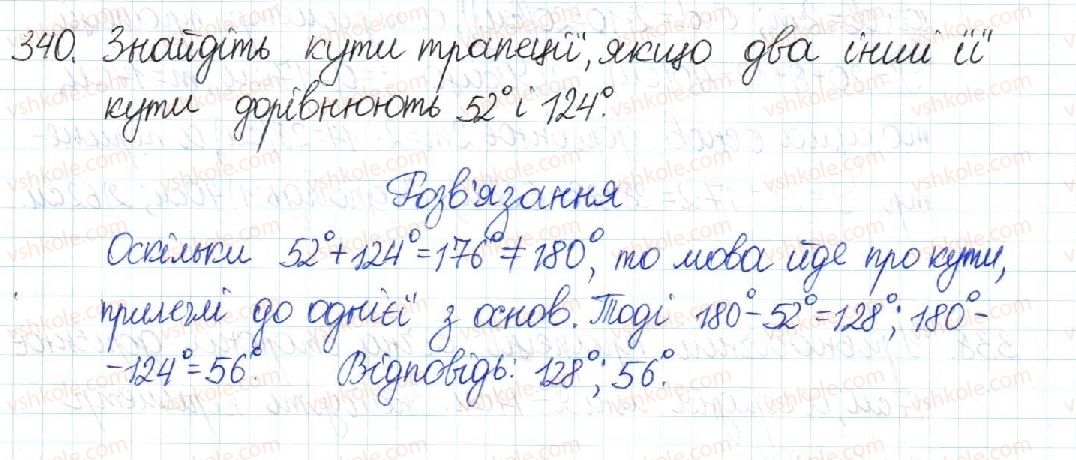 340. Знайдіть кути трапеції, якщо два інші її
кути дорівнюють 52° і 124°.
Розв'язання
Оскільки 52°+124°=176°≠180°, то мова йде про кути,
прилеглі до однієї з основ. Тоді 180°-52°=128°; 180°-
-124°=56°. Відповідь: 128°; 56°.